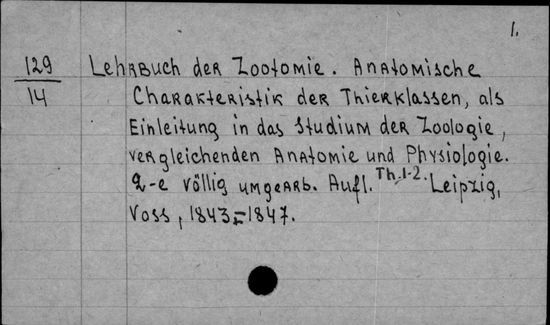 1.
129 Lehrbuch der Zootomie. Anatomische
14 Charakteristik der Thierklassen, als
Einleitung in das Studium der Zoologie,
vergleichenden Anatomie und Physiologie.
2-e völlig umgearb. Aufl. Th. 1-2. Leipzig,
Voss, 1843-1847.